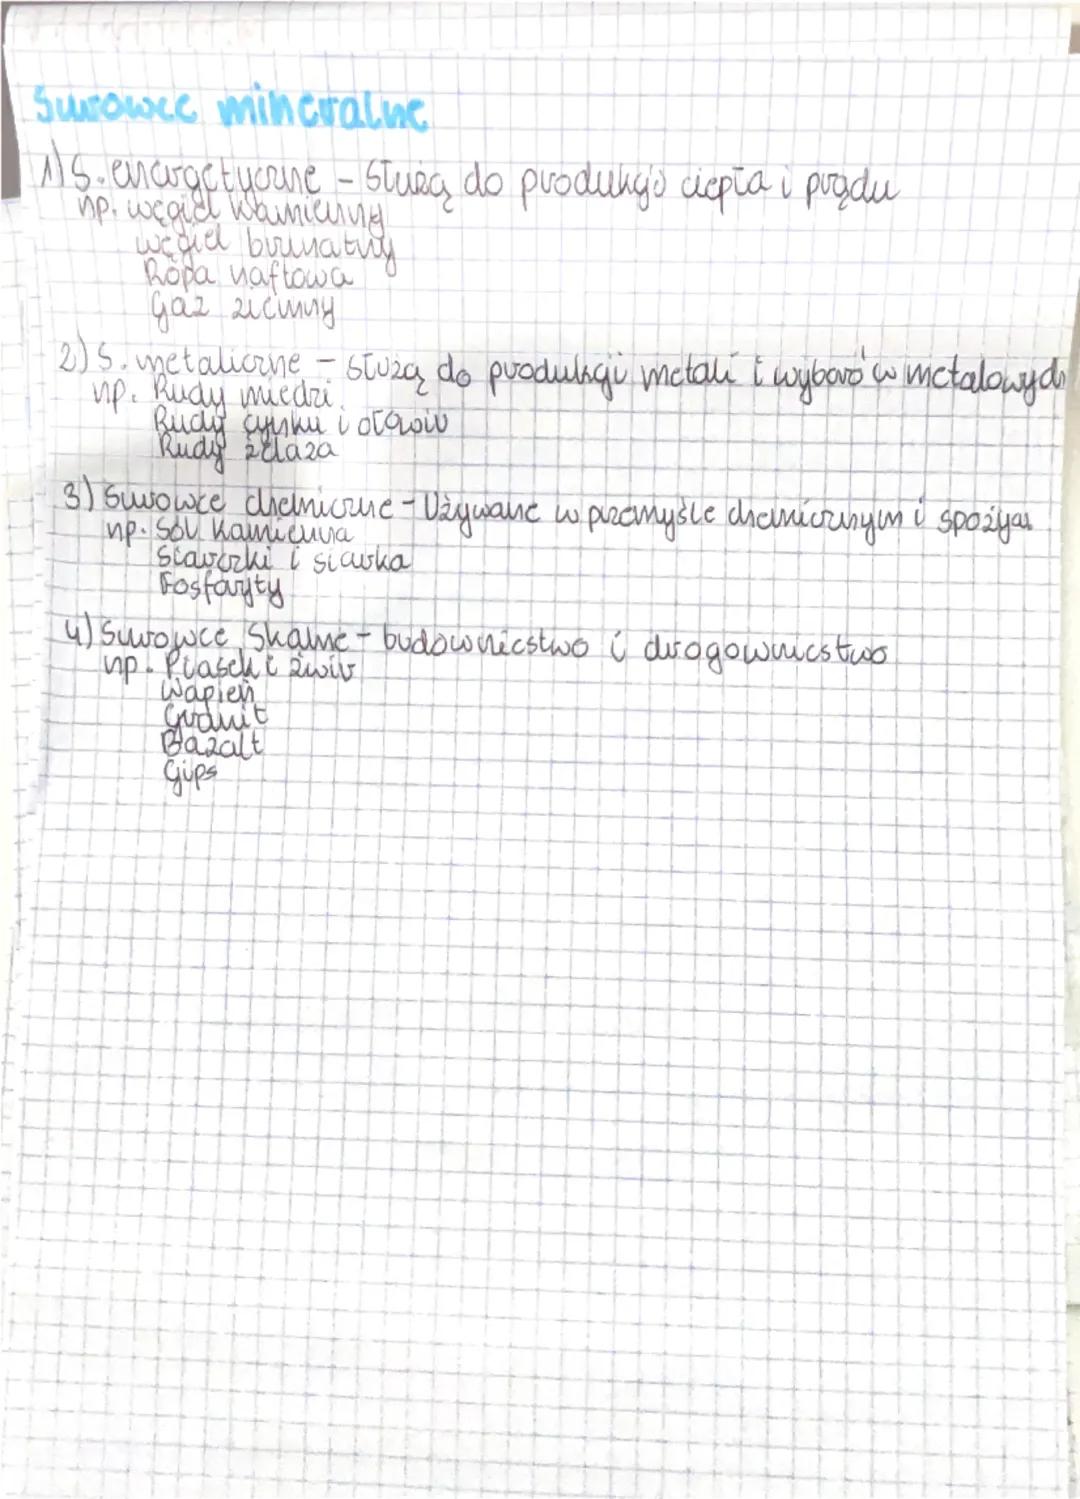 Surowce mineralne
1) S. energetyczne - Służą do produkcji ciepła i prądu
np. węgiel kamienny
węgiel brunatny
Ropa naftowa
Gaz ziemny
2) S. metaliczne - służą do produkcji metali i wyborów metalowych
np. Rudy miedzi
Rudy cynku i ołowiu
Rudy żelaza
3) Surowce chemiczne - Używane w przemyśle chemicznym i spożyw
np. Sól kamienna
Siarczki i siarka
Fosforyty
4) Surowce Skalne - budownictwo i drogownictwo
np. Piaseki żwir
Wapień
Granit
Bazalt
Gips